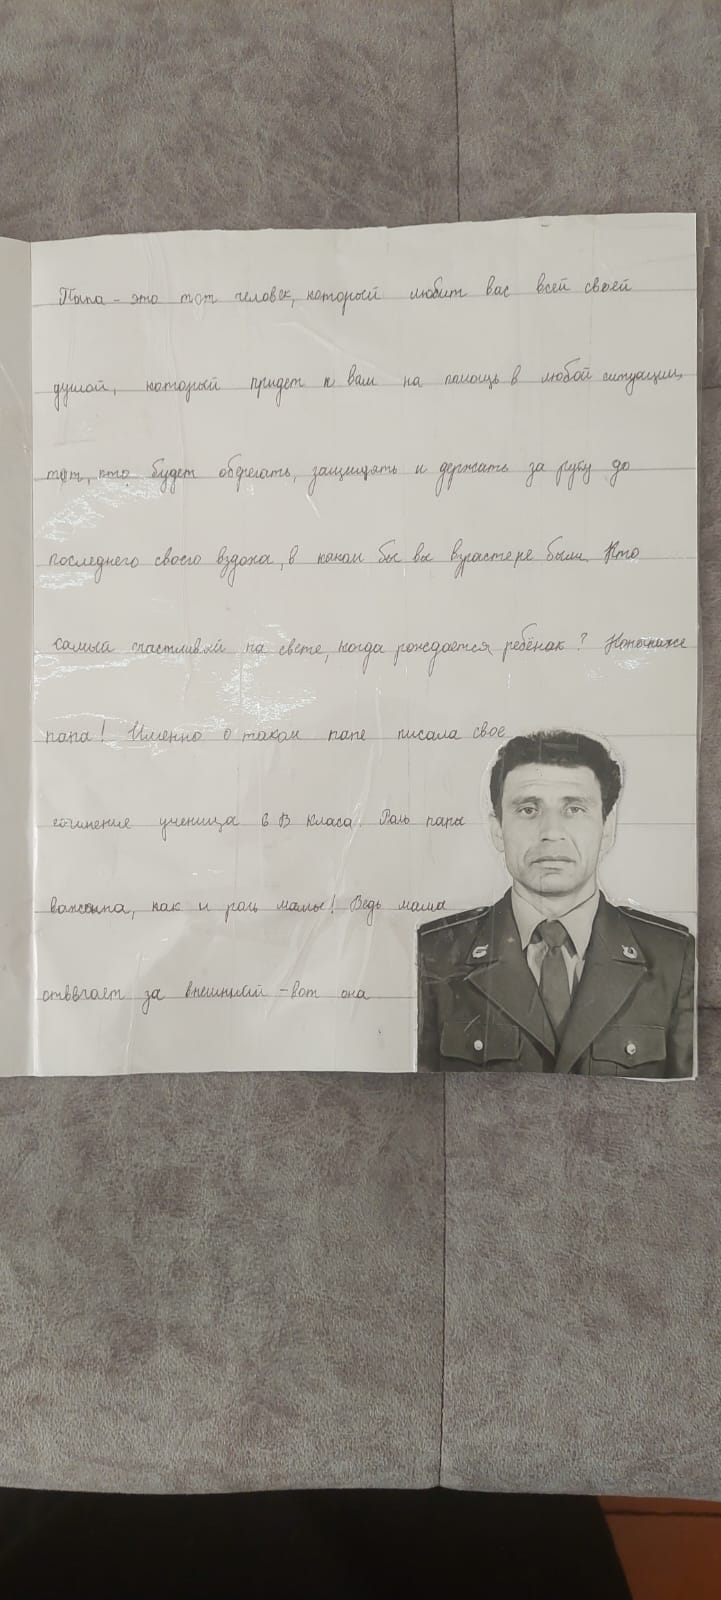 Папа - это тот человек, который любит вас всей своей
душой, который придет к вам на помощь в любой ситуации,
тот, кто будет оберегать, защищять и держать за руку до
последнего своего вздоха, в каком бы вы взрастере были. Кто
самый счастливый на свете, когда рождается ребёнак? Канечнаже
папа! Именно о таком папе писала свое
сочинение ученица 6 В класа. Роль папы
важна, как и роль мамы! Ведь мама
отвечает за внешнмий - вот она